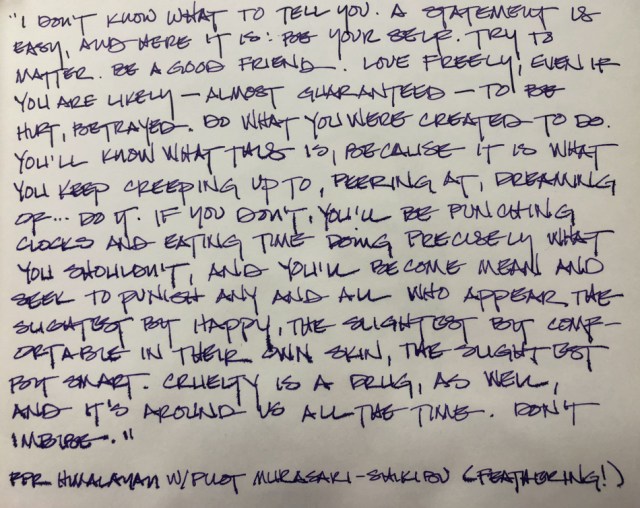 "I DON'T KNOW WHAT TO TELL YOU. A STATEMENT IS
EASY, AND HERE IT IS: BE YOUR SELF. TRY TO
MATTER. BE A GOOD FRIEND. LOVE FREELY, EVEN IF
YOU ARE LIKELY — ALMOST GUARANTEED — TO BE
HURT, BETRAYED. DO WHAT YOU WERE CREATED TO DO.
YOU'LL KNOW WHAT THIS IS, BECAUSE IT IS WHAT
YOU KEEP CREEPING UP TO, PEERING AT, DREAMING
OF... DO IT. IF YOU DON'T, YOU'LL BE PUNCHING
CLOCKS AND EATING TIME DOING PRECISELY WHAT
YOU SHOULDN'T, AND YOU'LL BECOME MEAN AND
SEEK TO PUNISH ANY AND ALL WHO APPEAR THE
SLIGHTEST BIT HAPPY, THE SLIGHTEST BIT COMF-
ORTABLE IN THEIR OWN SKIN, THE SLIGHTEST
BIT SMART. CRUELTY IS A DRUG, AS WELL,
AND IT'S AROUND US ALL THE TIME. DON'T
IMBIBE."
FPR HIMALAYAN W/PILOT MURASAKI-SHIKIBU (FEATHERING!)